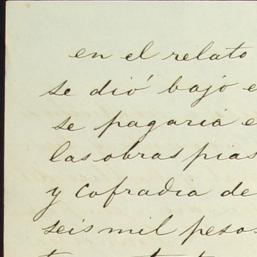 en el relato
se dió bajo
se pagaria
las obras pias
y cofradia de
seis mil pesos